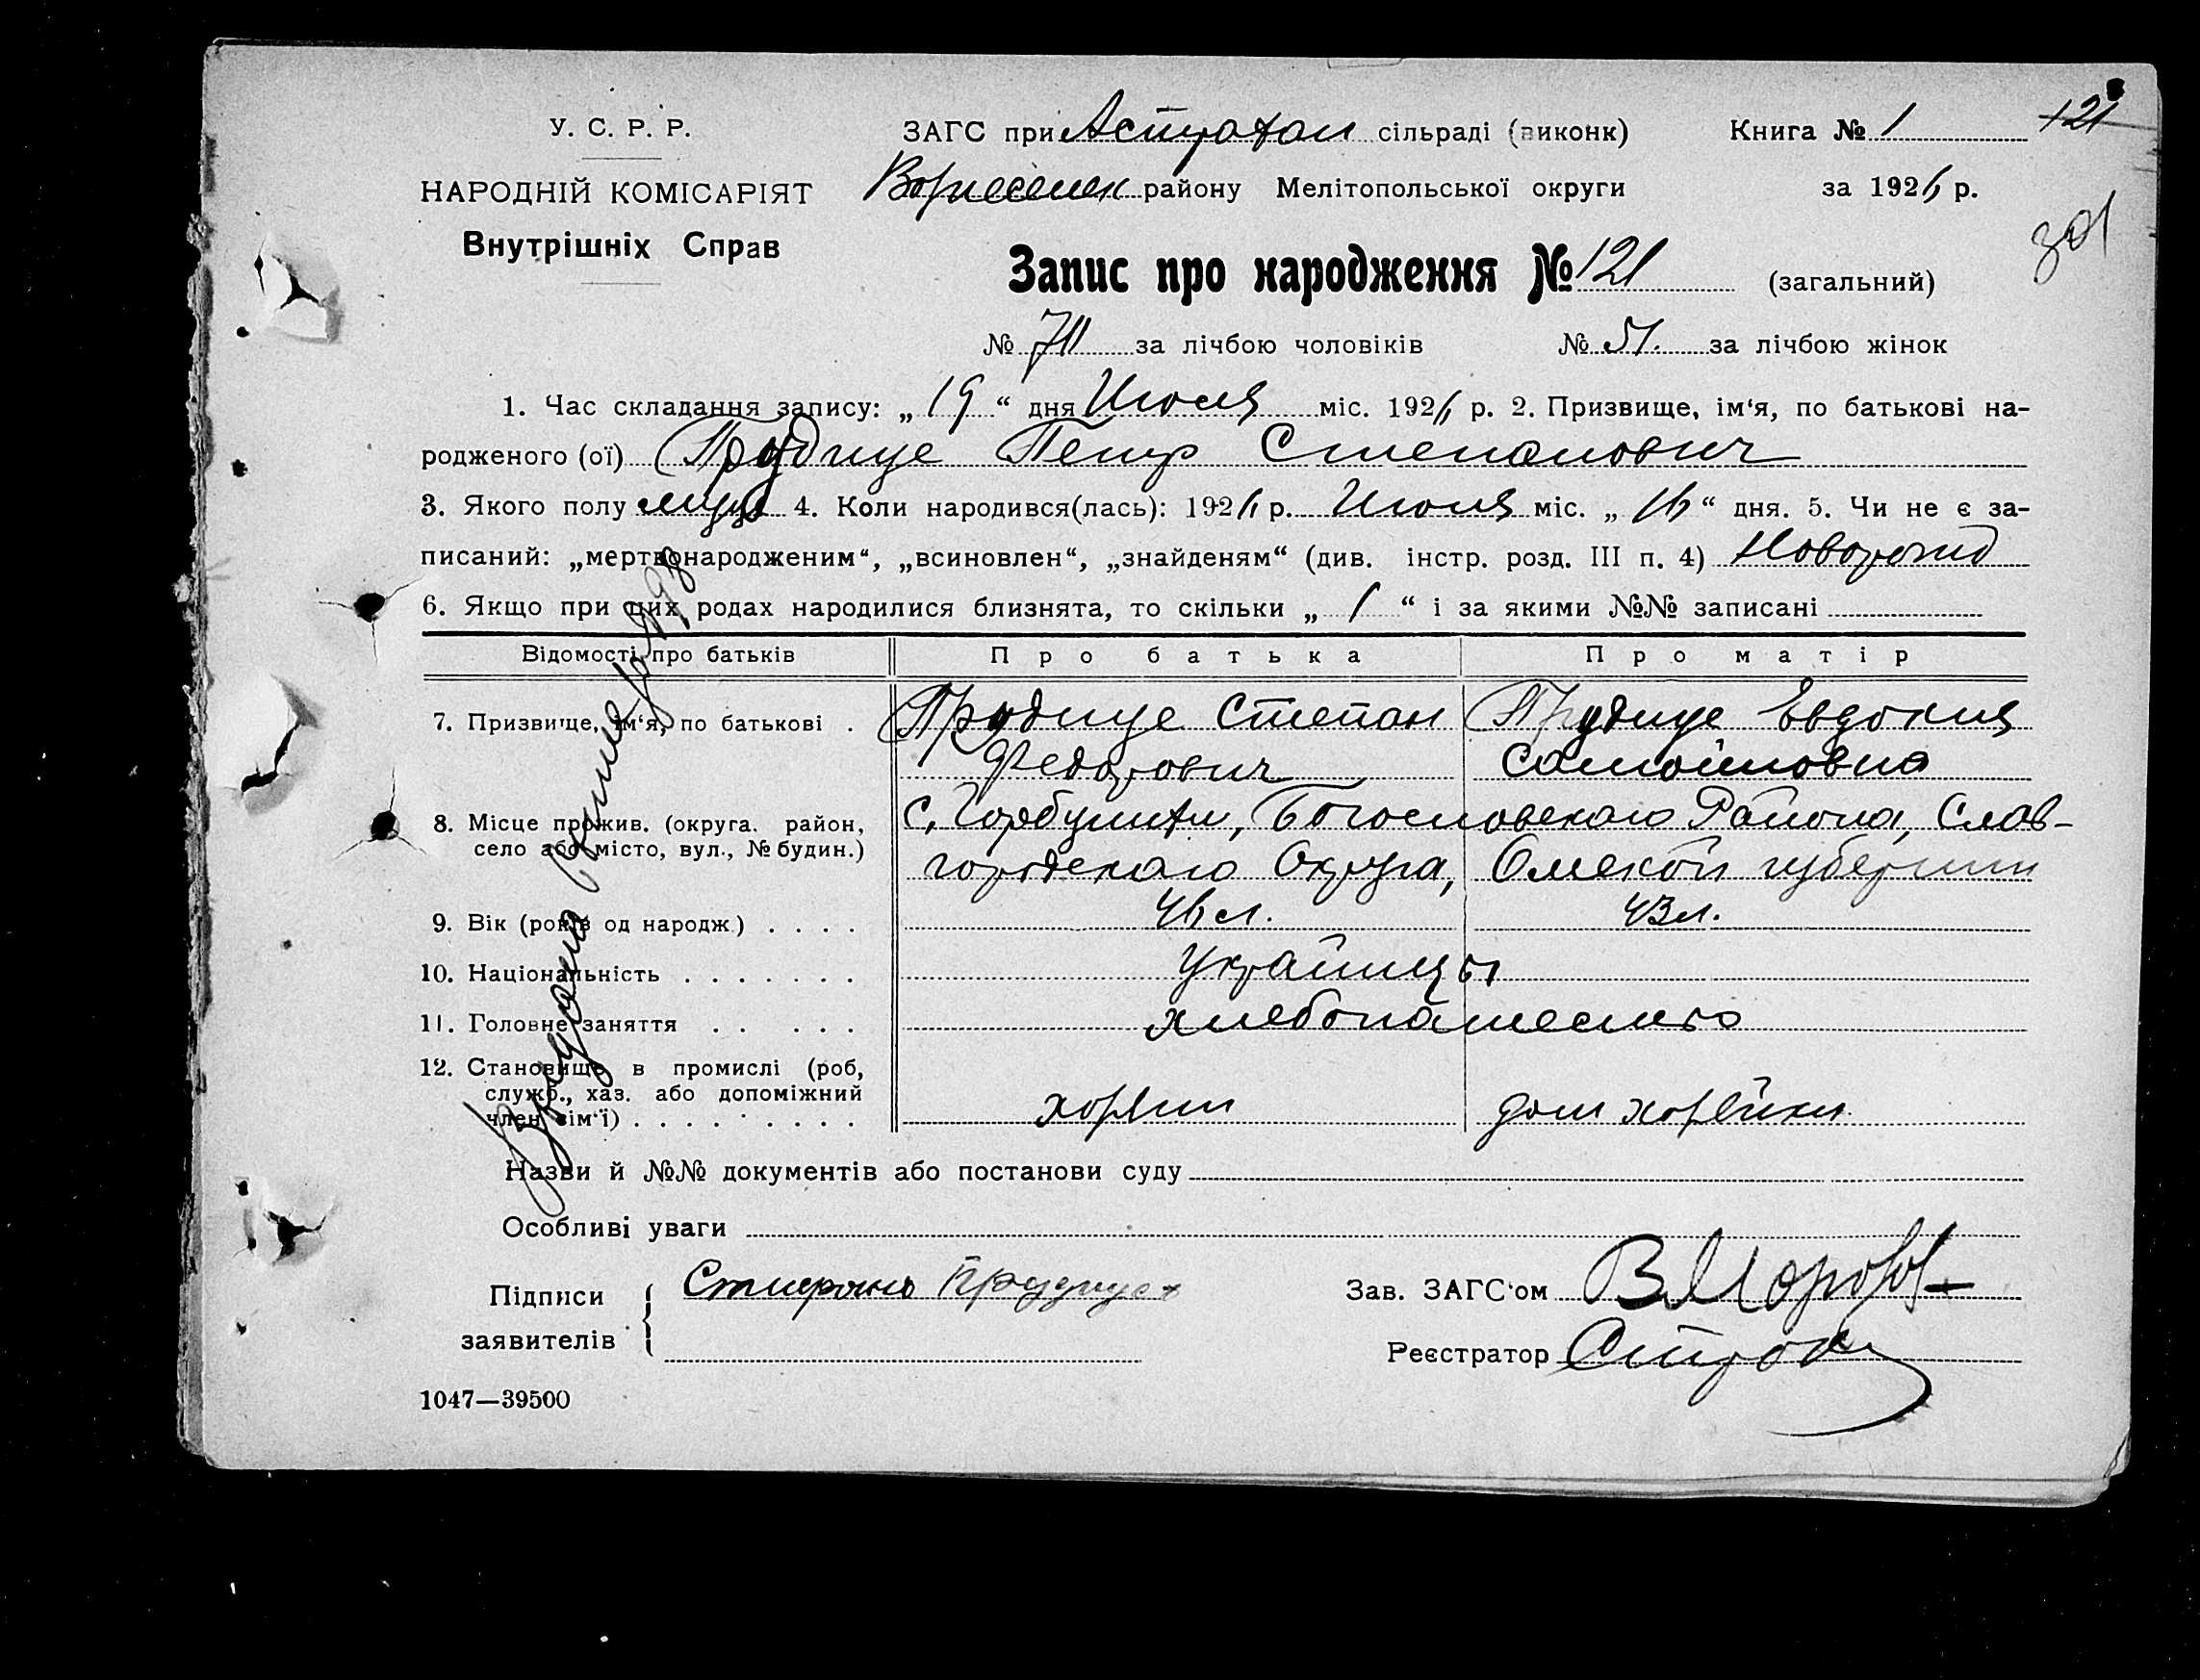 121
У. С. Р. Р. ЗАГС при Астрахан сільраді (виконк) Книга № 1
НАРОДНІЙ КОМІСАРІЯТ Вознесенск району Мелітопольської округи за 1926 р.
Внутрішніх Справ
Запис про народження № 121 (загальний)
№ за лічбою чоловіків № 51. за лічбою жінок
1. Час складання запису: „ 19 “ дня Июля міс. 1926 р. 2. Призвище, ім‘я, по батькові на-
родженого (ої) Прудище Петр Степанович
3. Якого полу муж 4. Коли народився(лась): 1926 р. Июля міс. „ 16 “ дня. 5. Чи не є за-
писаний: „мертвонародженим“, „всиновлен“, „знайденям“ (див. інстр. розд. III п. 4) Новорожд
6. Якщо при цих родах народилися близнята, то скільки „ 1 “ і за якими №№ записані
Відомості про батьків Про батька Про матір
7. Призвище, ім‘я, по батькові . Прудище Степан Прудище Евдокия
Федорович Самойловна
8. Місце прожив. (округа. район, с. Богословскаго Района, Слав-
село або місто, вул., № будин.)
городскаго Округа, Омской губернии
9. Вік (років од народж.) . . . . 46 л. 43 л.
10. Національність . . . . . . . Украйнцы
11. Головне заняття . . . . . хлебопашество
12. Становище в промислі (роб,
служб., хаз. або допоміжний
член сім‘ї) . . . . . . . . хозяин дом хозяйки
Назви й №№ документів або постанови суду
Особливі уваги
Підписи Зав. ЗАГС‘ом В Морозов
заявителів
Реєстратор
1047—39500